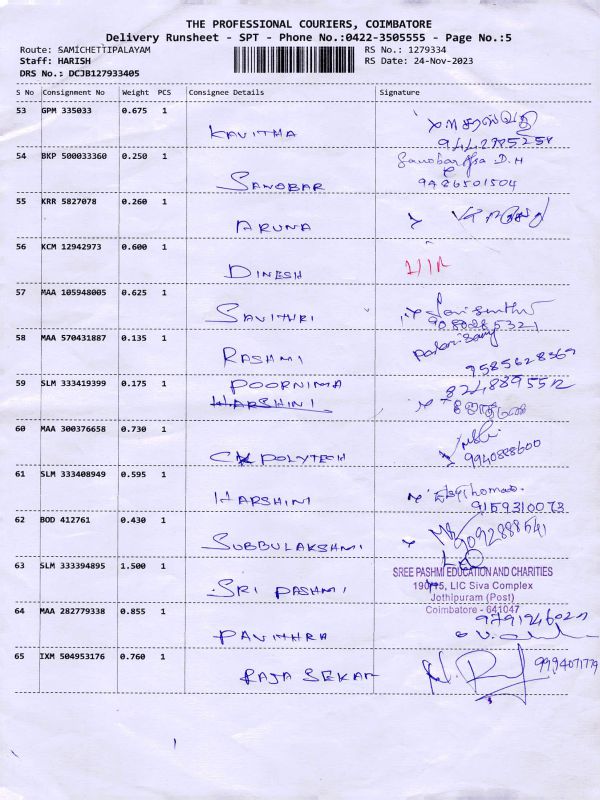 THE PROFESSIONAL COURIERS, COIMBATORE
Delivery Runsheet - SPT - Phone No.:0422-3505555 - Page No.:5
Route: SAMICHETTIPALAYAM RS No.: 1279334
Staff: HARISH RS Date: 24-Nov-2023
DRS No.: DCJB127933405
S No Consignment No Weight PCS Consignee Details Signature
53 GPM 335033 0.675 1
KAVITHA 9442785254
54 BKP 500033360 0.250 1 Sanobar D.H
SANOBAR 9486501504
55 KRR 5827078 0.260 1
ARUNA
56 KCM 12942973 0.600 1
DINESH
57 MAA 105948005 0.625 1
SAVITHRI 9080285321
58 MAA 570431887 0.135 1
RASHMI 9585628367
59 SLM 333419399 0.175 1 POORNIMA 8248895512
HARSHINI
60 MAA 300376658 0.730 1
CK POLYTECH 9940888600
61 SLM 333408949 0.595 1 Thomas
HARSHINI 9159310073
62 BOD 412761 0.430 1
SUBBULAKSHMI 9092888541
63 SLM 333394895 1.500 1 SREE PASHMI EDUCATION AND CHARITIES
SRI PASHMI LIC Siva Complex
Jothipuram (Post)
64 MAA 282779338 0.855 1 Coimbatore - 641047
PAVITHRA
65 IXM 504953176 0.760 1
RAJA SEKAR 9994071779